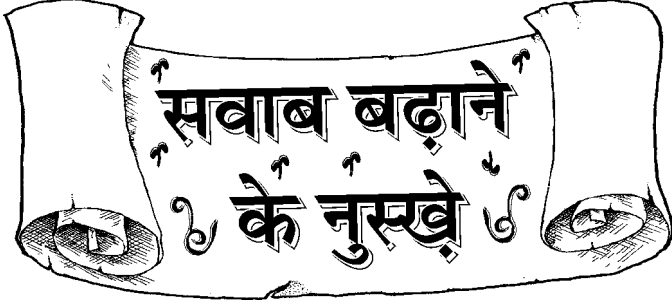 सवाब बढ़ाने
के नुस्ख़े